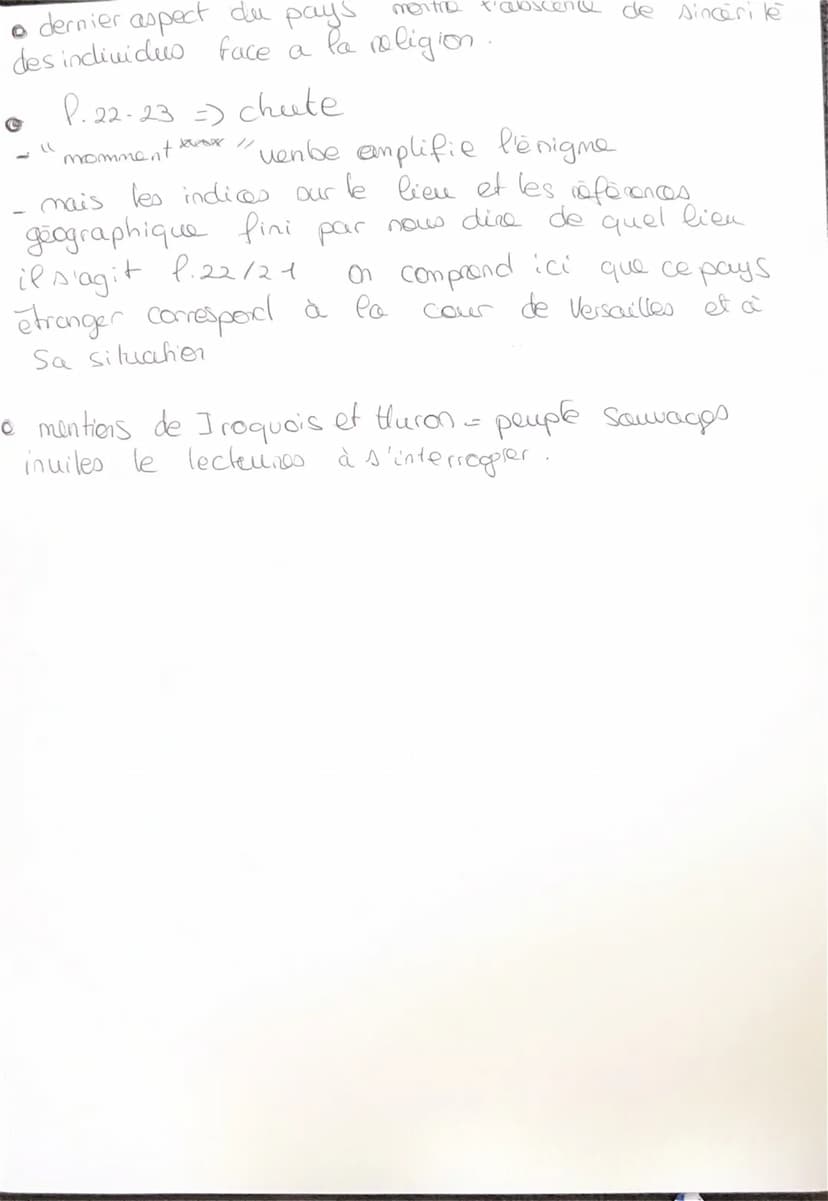 dernier aspect du pays montre l'abscence de sincérité
des individus face a la religion.
l.22-23 => chute
- "momment" verbe amplifie l'énigme
- mais les indices sur le lieu et les références
géographique fini par nous dire de quel lieu
il s'agit l.22/21 on comprend ici que ce pays
étranger correspond à la cour de Versailles et à
sa situation
mentions de Iroquois et Huron = peuple sauvages
invites le lecteures à s'interroger.